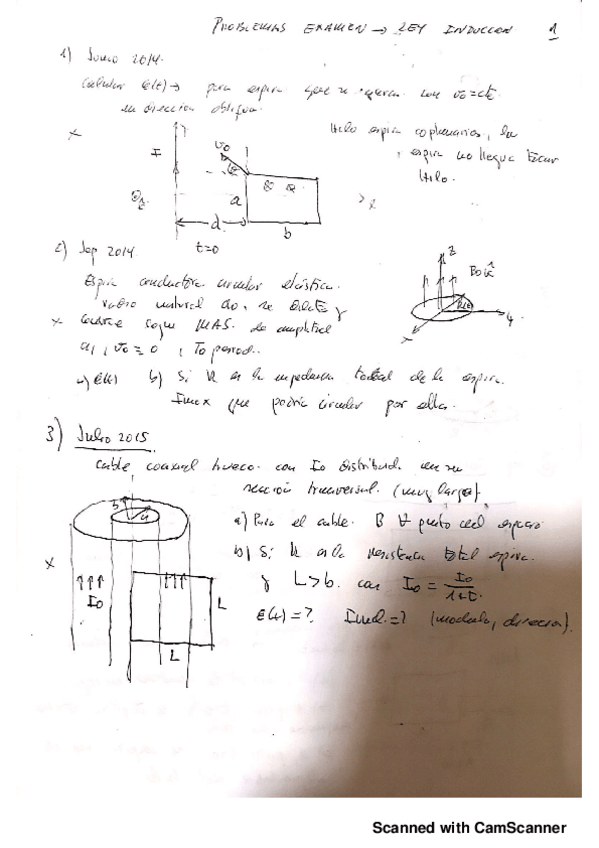 PROBLEMAS EXAMEN → LEY INDUCCION 1
1) Junio 2014.
Calcular ε(t) → para espira que se mueve con v₀ = cte.
en dirección oblicua.
Hilo espira coplanarios, la
espira no llegue tocar
Hilo.
x
I
v₀
a
d
b
x
t=0
2) Sep 2014
Espira conductora circular elástica.
radio natural a₀, se
x MAS. de amplitud
a₁, v₀ = 0, T₀ period.
z
B₀ k̂
y
x
a) ε(t) b) Si R es la impedancia total de la espira.
Imax que podría circular por ella.
3) Julio 2015
Cable coaxial hueco con I₀ distribuida en su
sección transversal. (muy largo).
b
a
a) Para el cable. B ∀ punto del espacio
x
b) Si R es la resistencia total espira.
I₀
L
y L>b. con I₀ = I₀/1+t.
ε(t)=? Iind.=? (modulo, direccion).
L
Scanned with CamScanner